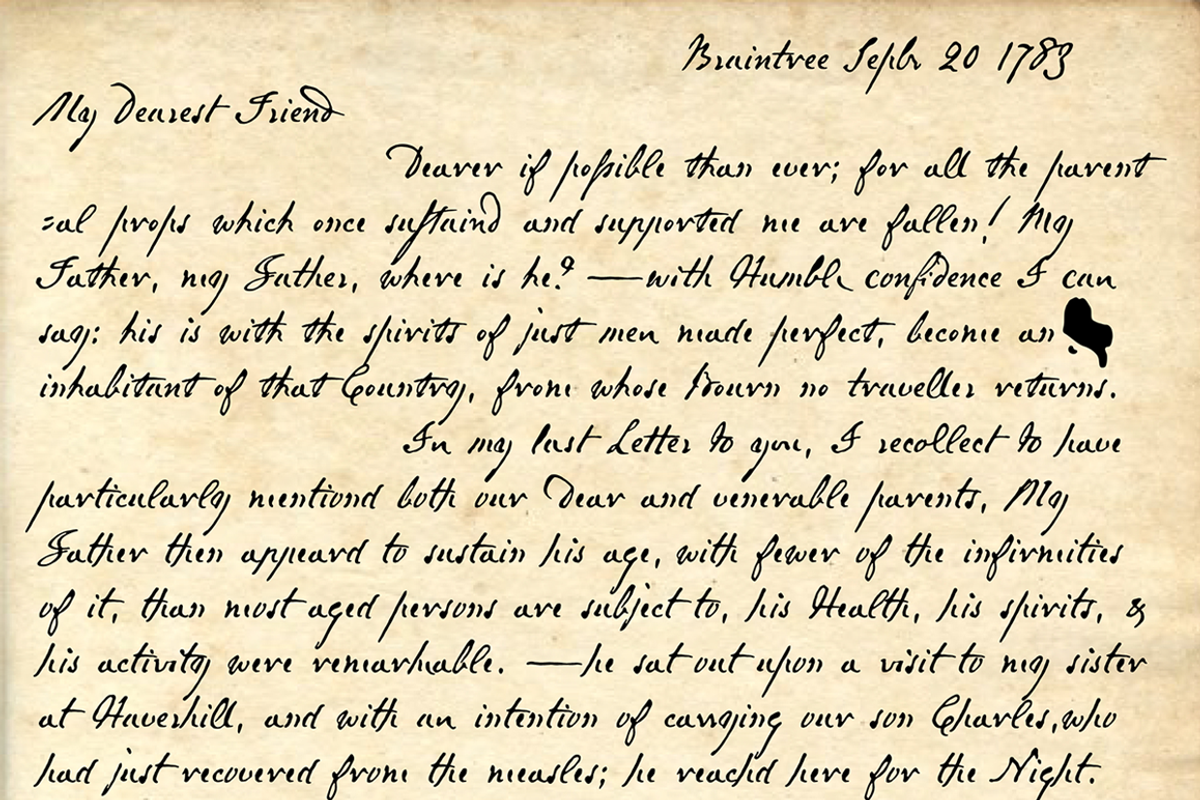 Braintree Sepbr 20 1783
My Dearest Friend
Dearer if poſsible than ever; for all the parent
=al props which once suſtaind and supported me are fallen! My
Father, my Father, where is he? —with Humble confidence I can
say: his is with the spirits of just men made perfect, become an
inhabitant of that Country, from whose Bourn no traveller returns.
In my last Letter to you, I recollect to have
particularly mentiond both our Dear and venerable parents, My
Father then appeard to sustain his age, with fewer of the infirmities
of it, than most aged persons are subject to, his Health, his spirits, &
his activity were remarkable. —he sat out upon a visit to my sister
at Haverhill, and with an intention of carrying our son Charles, who
had just recovered from the measles; he reachd here for the Night.